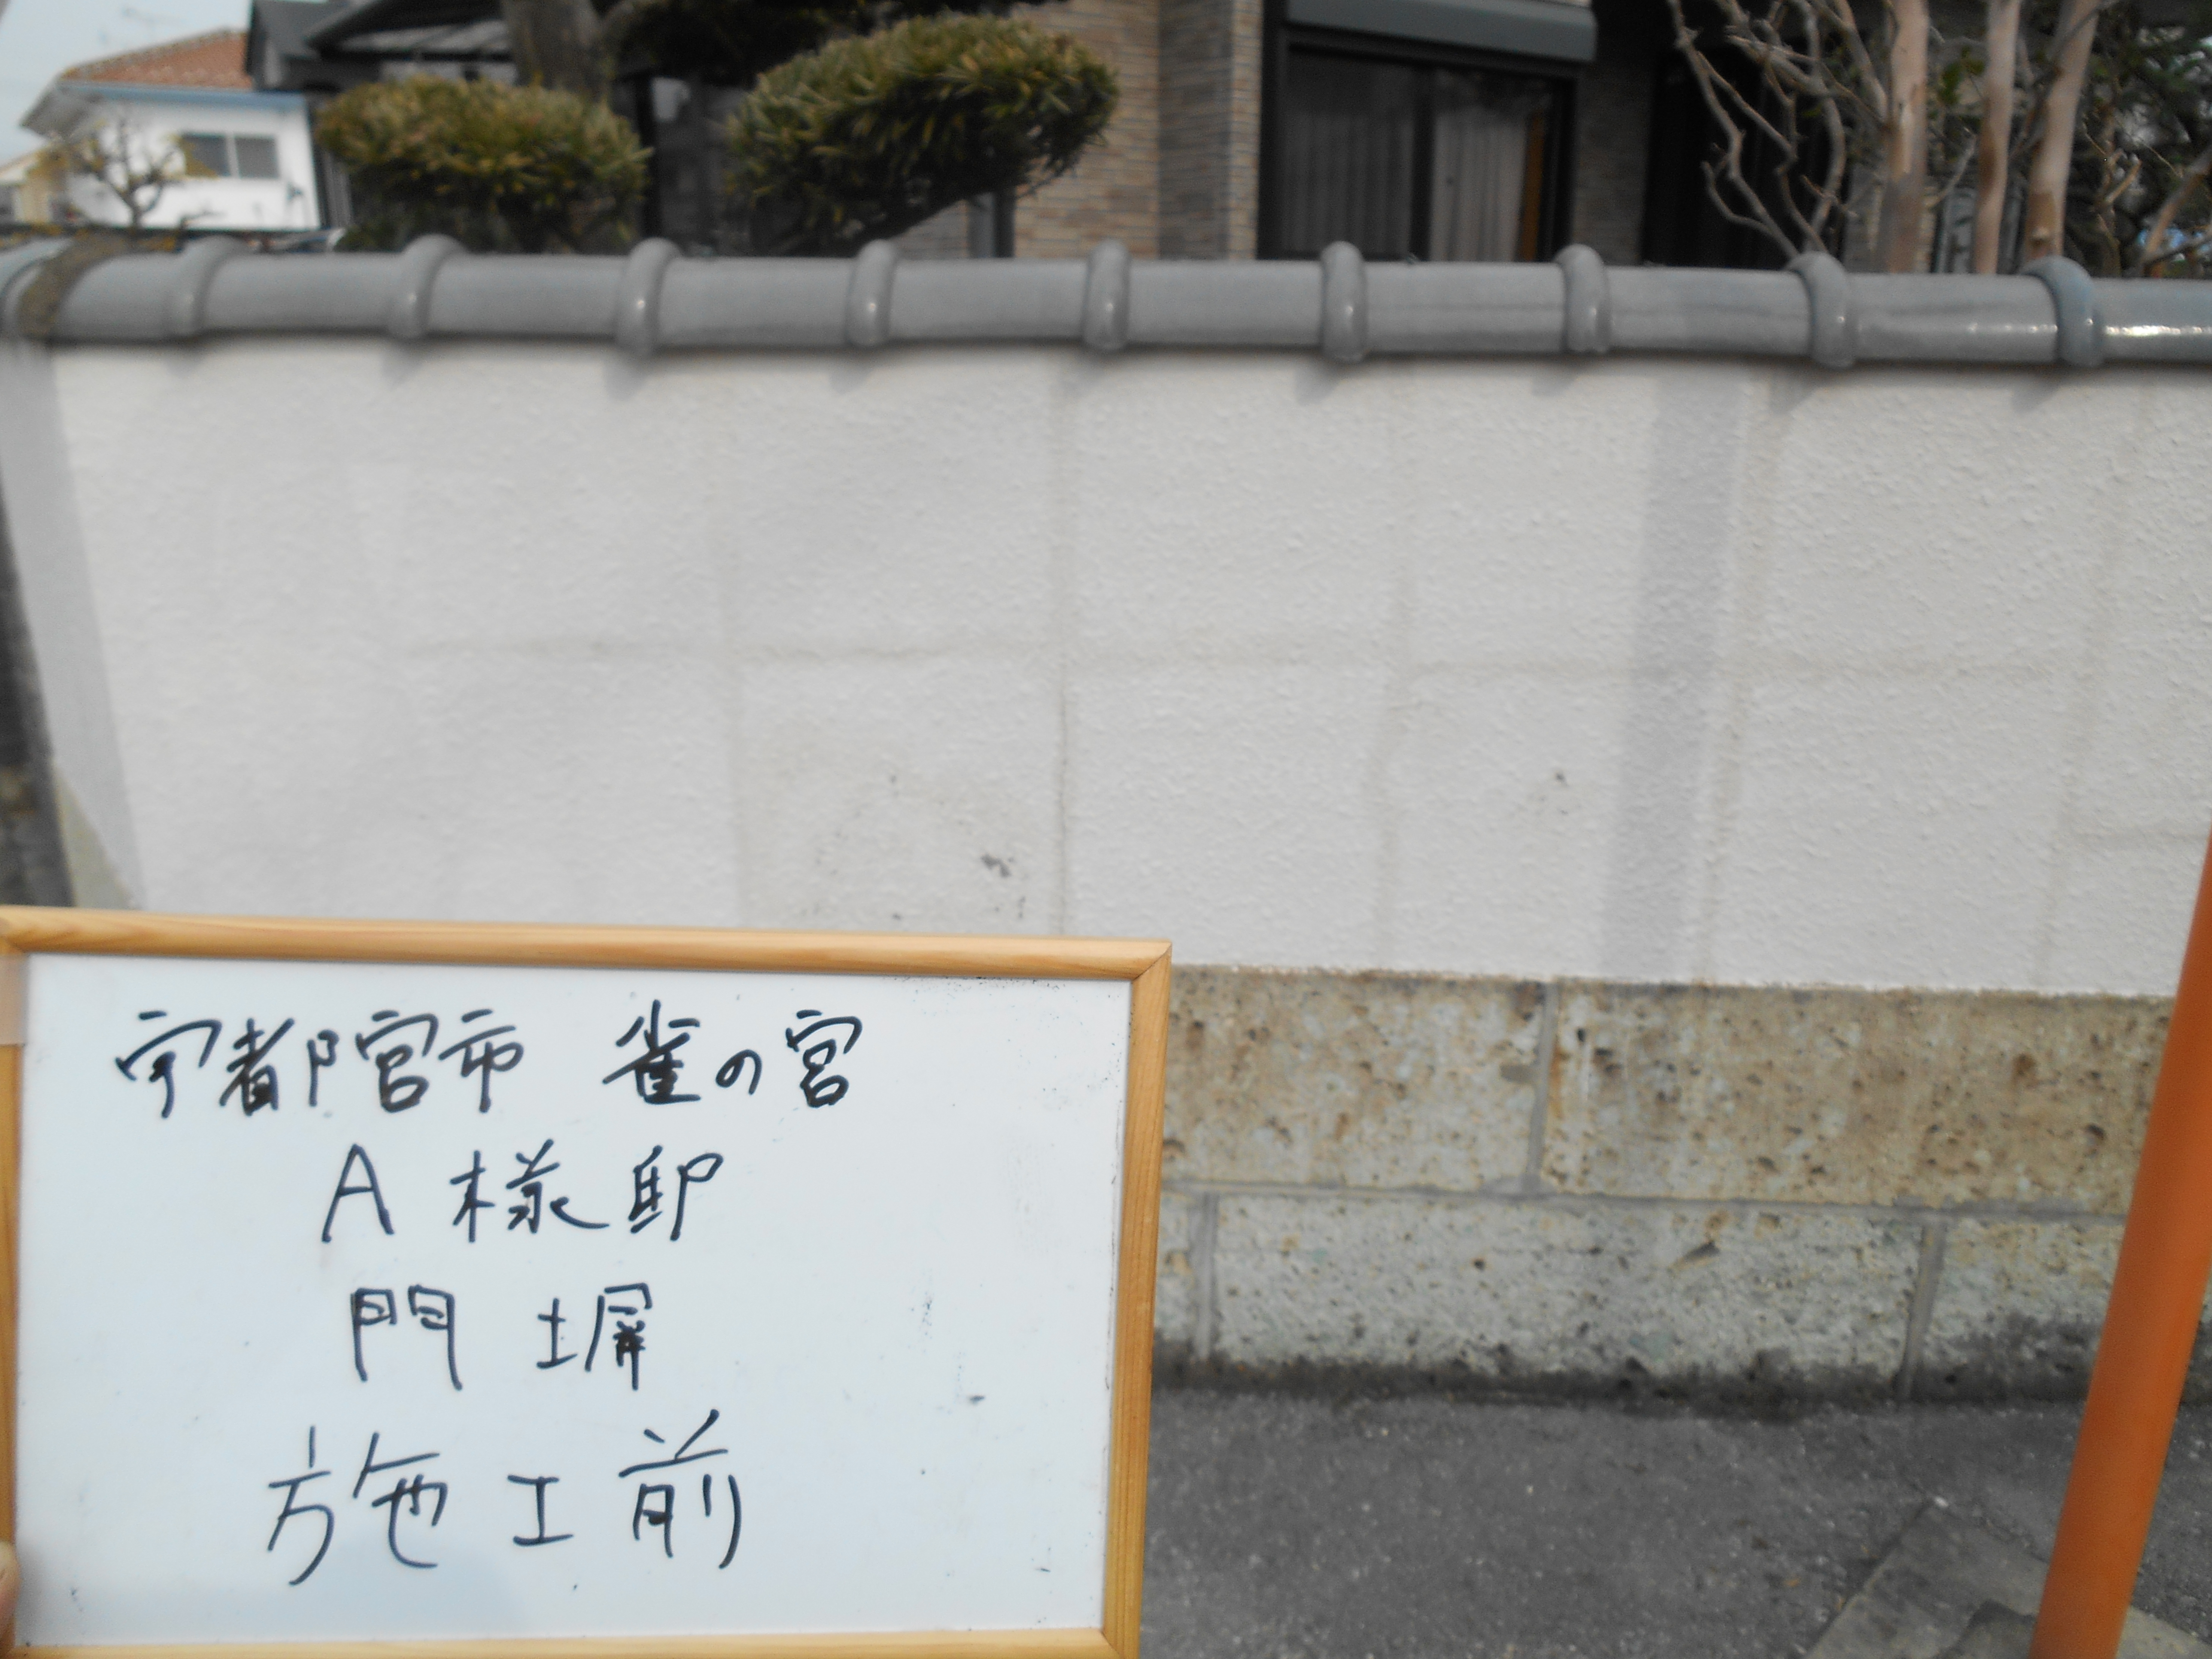 宇都宮市 雀の宮
A 様 邸
門 塀
施工前